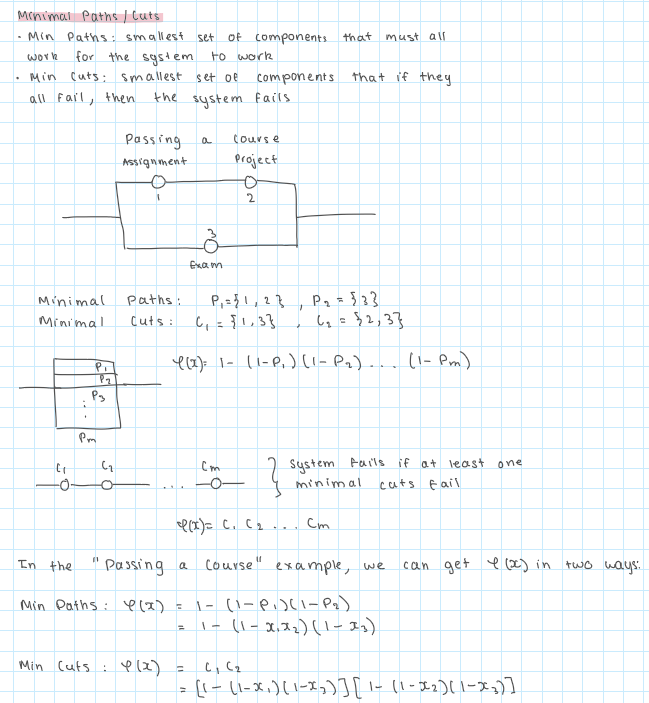 Minimal Paths/Cuts
· Min Paths: smallest set of components that must all
work for the system to work
· Min Cuts: smallest set of components that if they
all fail, then the system fails
Passing a Course
Assignment Project
1 2
3
Exam
Minimal Paths: P₁={1,2}, P₂={3}
Minimal Cuts: C₁={1,3}, C₂={2,3}
P₁ φ(x)= 1-(1-P₁)(1-P₂)...(1-Pm)
P₂
P₃
⋮
Pm
C₁ C₂ ... Cm } System fails if at least one
minimal cuts fail
φ(x)= C₁C₂...Cm
In the "Passing a Course" example, we can get φ(x) in two ways:
Min Paths: φ(x) = 1-(1-P₁)(1-P₂)
= 1-(1-x₁x₂)(1-x₃)
Min Cuts: φ(x) = C₁C₂
= [1-(1-x₁)(1-x₃)][1-(1-x₂)(1-x₃)]